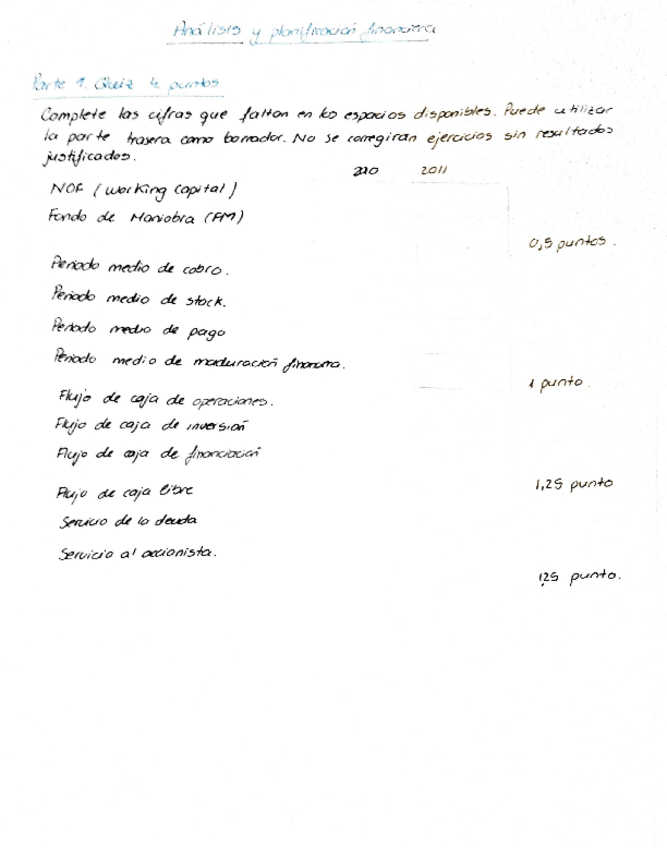 Análisis y planificación financiera
Parte 1. Quiz 4 puntos
Complete las cifras que faltan en los espacios disponibles. Puede utilizar
la parte trasera como borrador. No se corregiran ejercicios sin resultados
justificados.
2010 2011
NOF (Working Capital)
Fondo de Maniobra (FM)
0,5 puntos.
Periodo medio de cobro.
Periodo medio de stock.
Periodo medio de pago
Periodo medio de maduración financiera.
1 punto.
Flujo de caja de operaciones.
Flujo de caja de inversión
Flujo de caja de financiación
1,25 punto
Flujo de caja libre
Servicio de la deuda
Servicio al accionista.
1,25 punto.